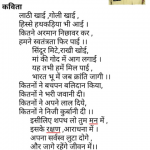 कविता
लाठी खाई ,गोली खाई ,
हिस्से हथकड़िया भी आई ।
कितने अरमान निछावर कर ,
हमने स्वतंत्रता फिर पाई ।।
सिंदूर मिटे,राखी खोई,
मां की गोद में आग लगाई
यह तभी हमें मिल पाई ,
भारत भू में जब क्रांति जागी ।।
कितनों ने बचपन बलिदान किया,
कितनों ने भरी जवानी दी।
कितनों ने अपने लाल दिये,
कितनों ने निजी कुर्बानी दी ।।
इसीलिए शपथ लो तुम मन में ,
इसके रक्षण ,आराधना में ।
अपना सर्वस्व लुटा दोगे ,
और जागे रहेंगे जीवन में।।